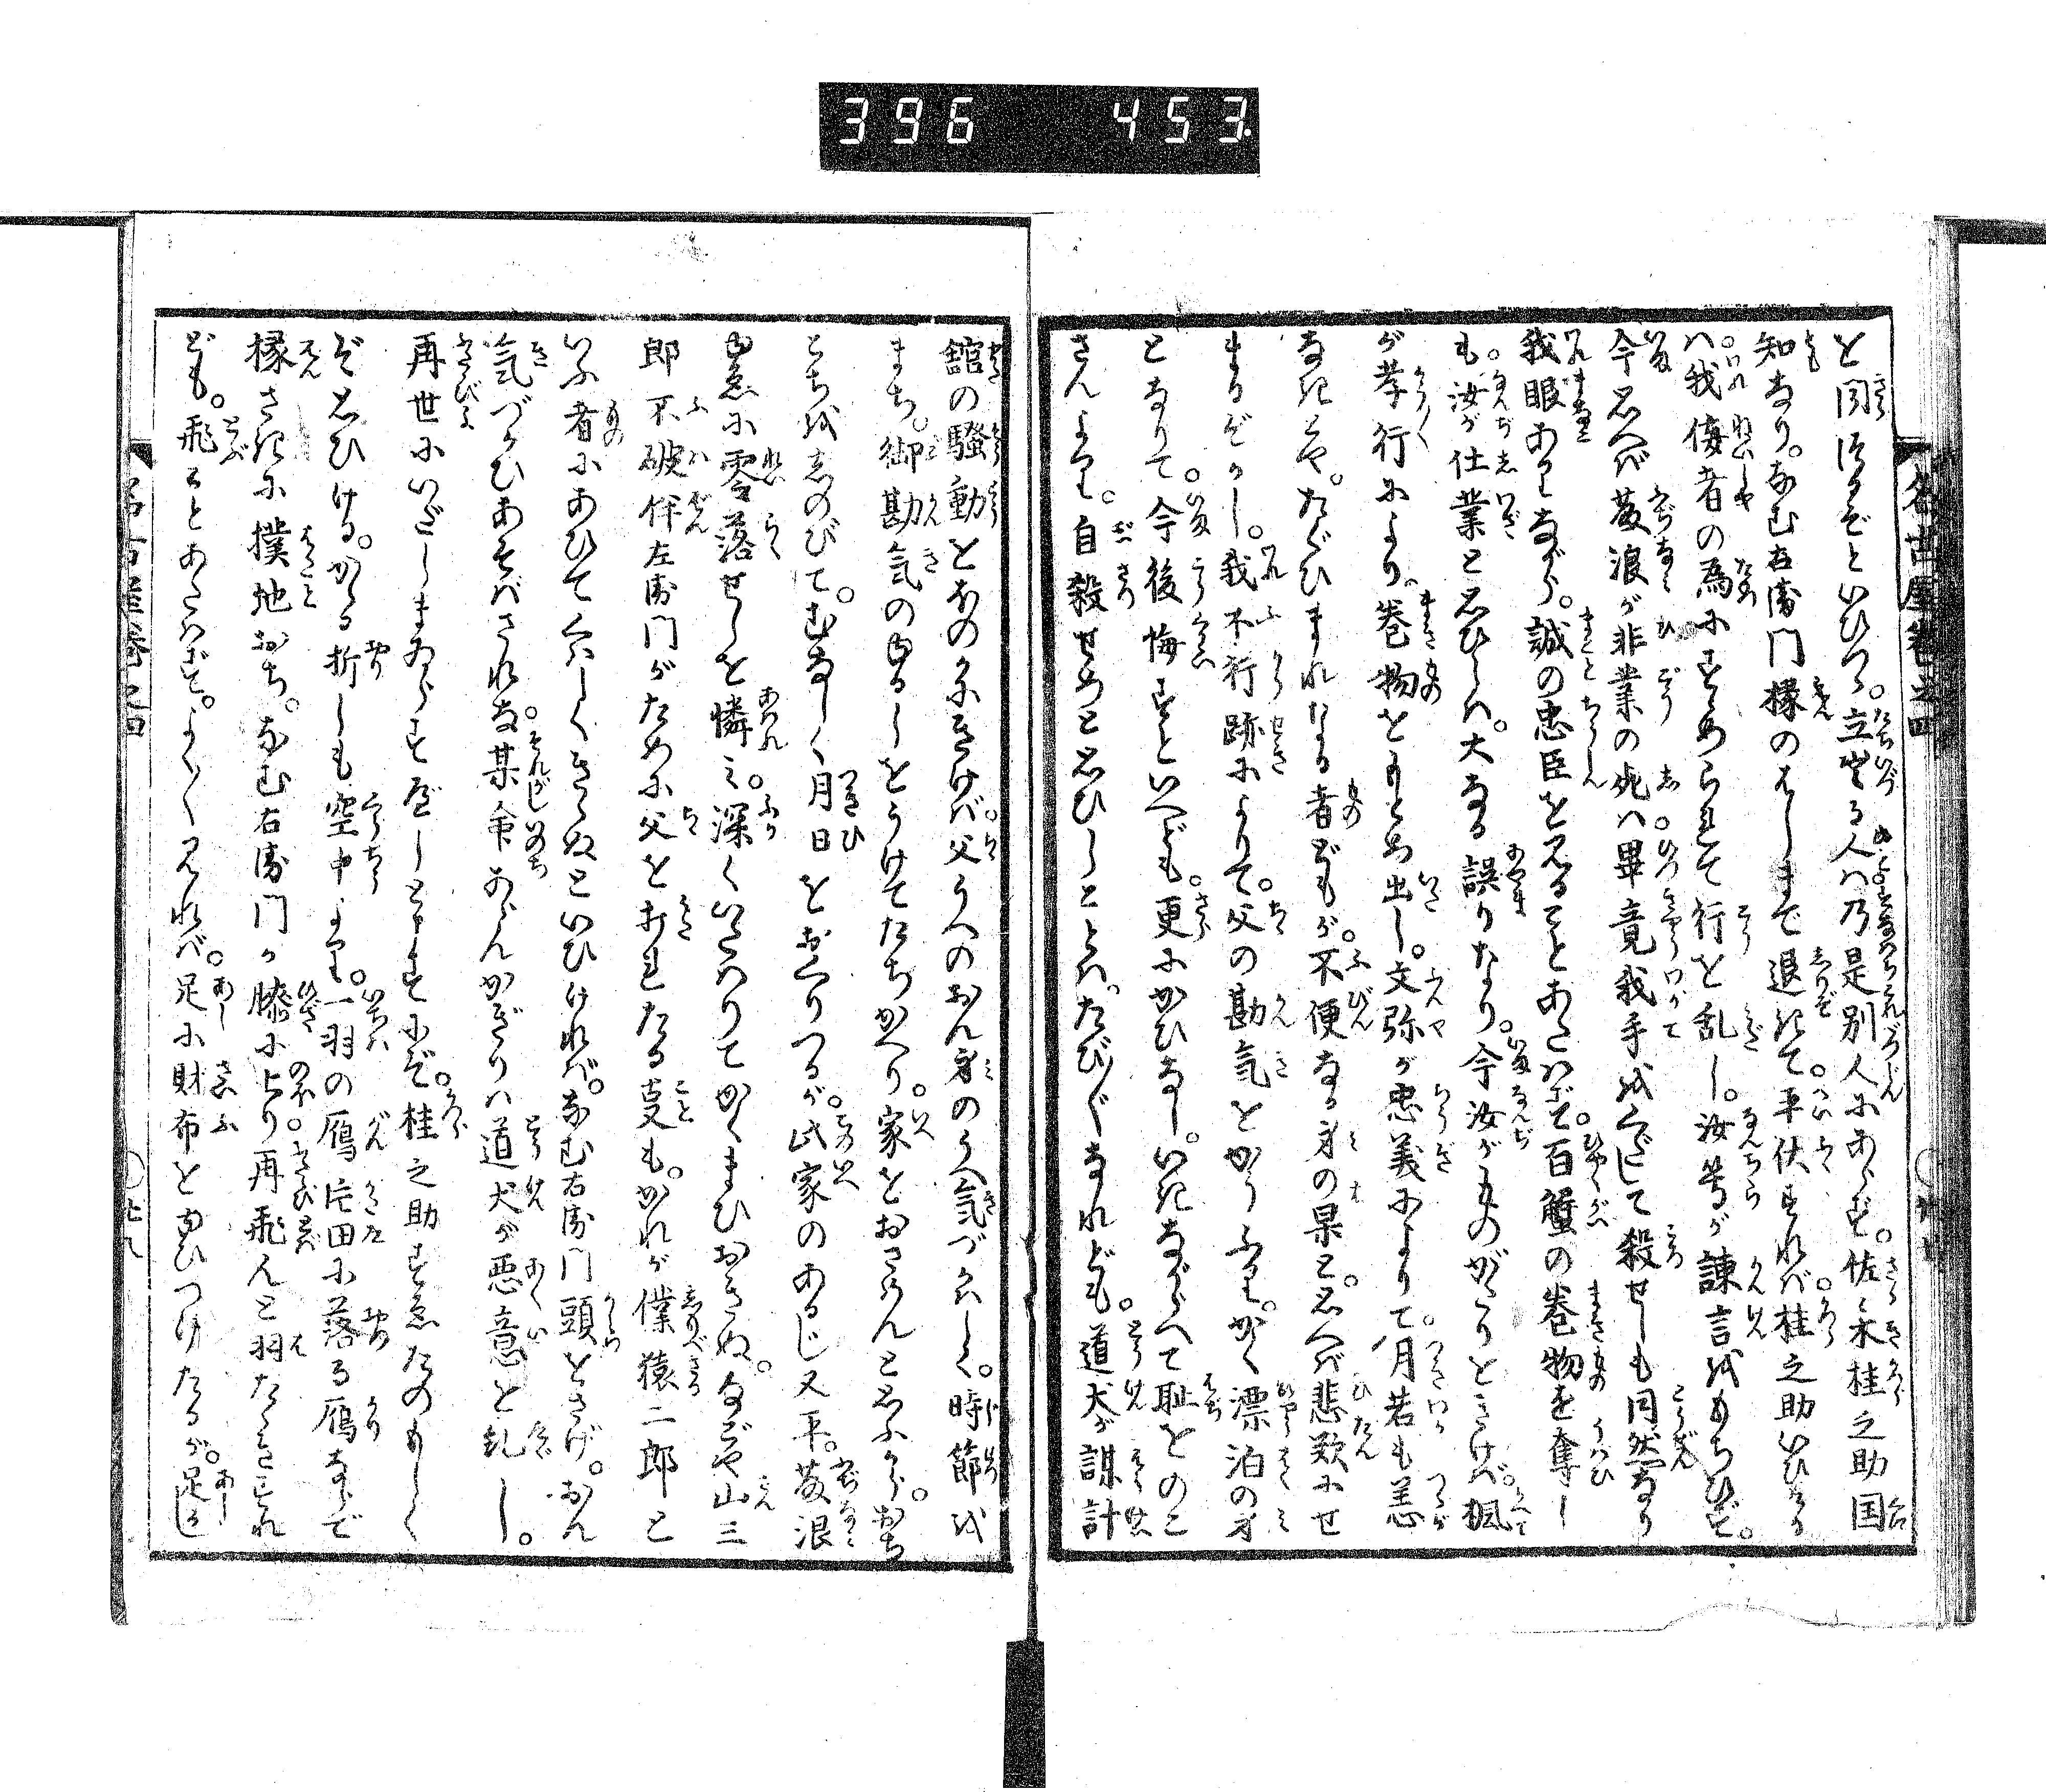 396 453.
と問ほるぞといひつゝ。立出る人ハ乃是別人にあらず。佐々木桂之助国
知なり。なむ右衛門椽のはしまで退きて。平伏すれバ。桂之助いひける
ハ。我侫者の為にすゝめられて行を乱し。汝等が諫言をもちひず。
今思へバ藤浪が非業の死ハ。畢竟我手をくだして殺せしも同然なり
我眼ありながら。誠の忠臣を見ることあたはず。百蟹の巻物を奪し
も。汝が仕業と思ひしハ。大なる誤りなり。今汝がものがたりをきけば。楓
が孝行により。巻物をもとめ出し。文弥が忠義によりて。月若も恙
なきとや。たぐひまれなる者どもが。不便なる身の果と。思へバ悲歎にせ
まるぞかし。我不行跡によりて。父の勘気をかうふり。かく漂泊の身
となりて。今後悔すといへども。更にかひなし。いきながらへて恥をのこ
さんより。自殺せめと思ひしことハ。たびゝゝなれども。道犬が謀計
舘の騒動をほのかにきけば。父うへのおん身のうへ気づかはしく。時節を
まち。御勘気のゆるしをうけてたちかへり。家をおさめんと思ふから。おち
こちをしのびて。むなしく月日をおくりつるが。此家のあるじ又平。藤浪
ゆゑに零落せしを憐み。深くいたはりてかくまひおきぬ。なごや山三
郎不破伴左衛門がために父を打れたる事も。かれが僕猿二郎と
いふ者にあひてくはしくきゝぬといひければ。なむ右衛門頭をさげ。おん
気づかひあそバされな。某命あらんかぎりハ道犬が悪意を乱し。
再世にいだしまゐらすべしと申すにぞ。桂之助すゑたのもしく
ぞ思ひける。かゝる折しも空中より。一羽の鴈片田に落る鴈ならで
椽さきに撲地おち。なむ右衛門が膝に上り再飛んと羽たゝきすれ
ども。飛ことあたはず。よくゝゝ見れバ。足に財布をゆひつけたるが。足に
名古屋巻之四